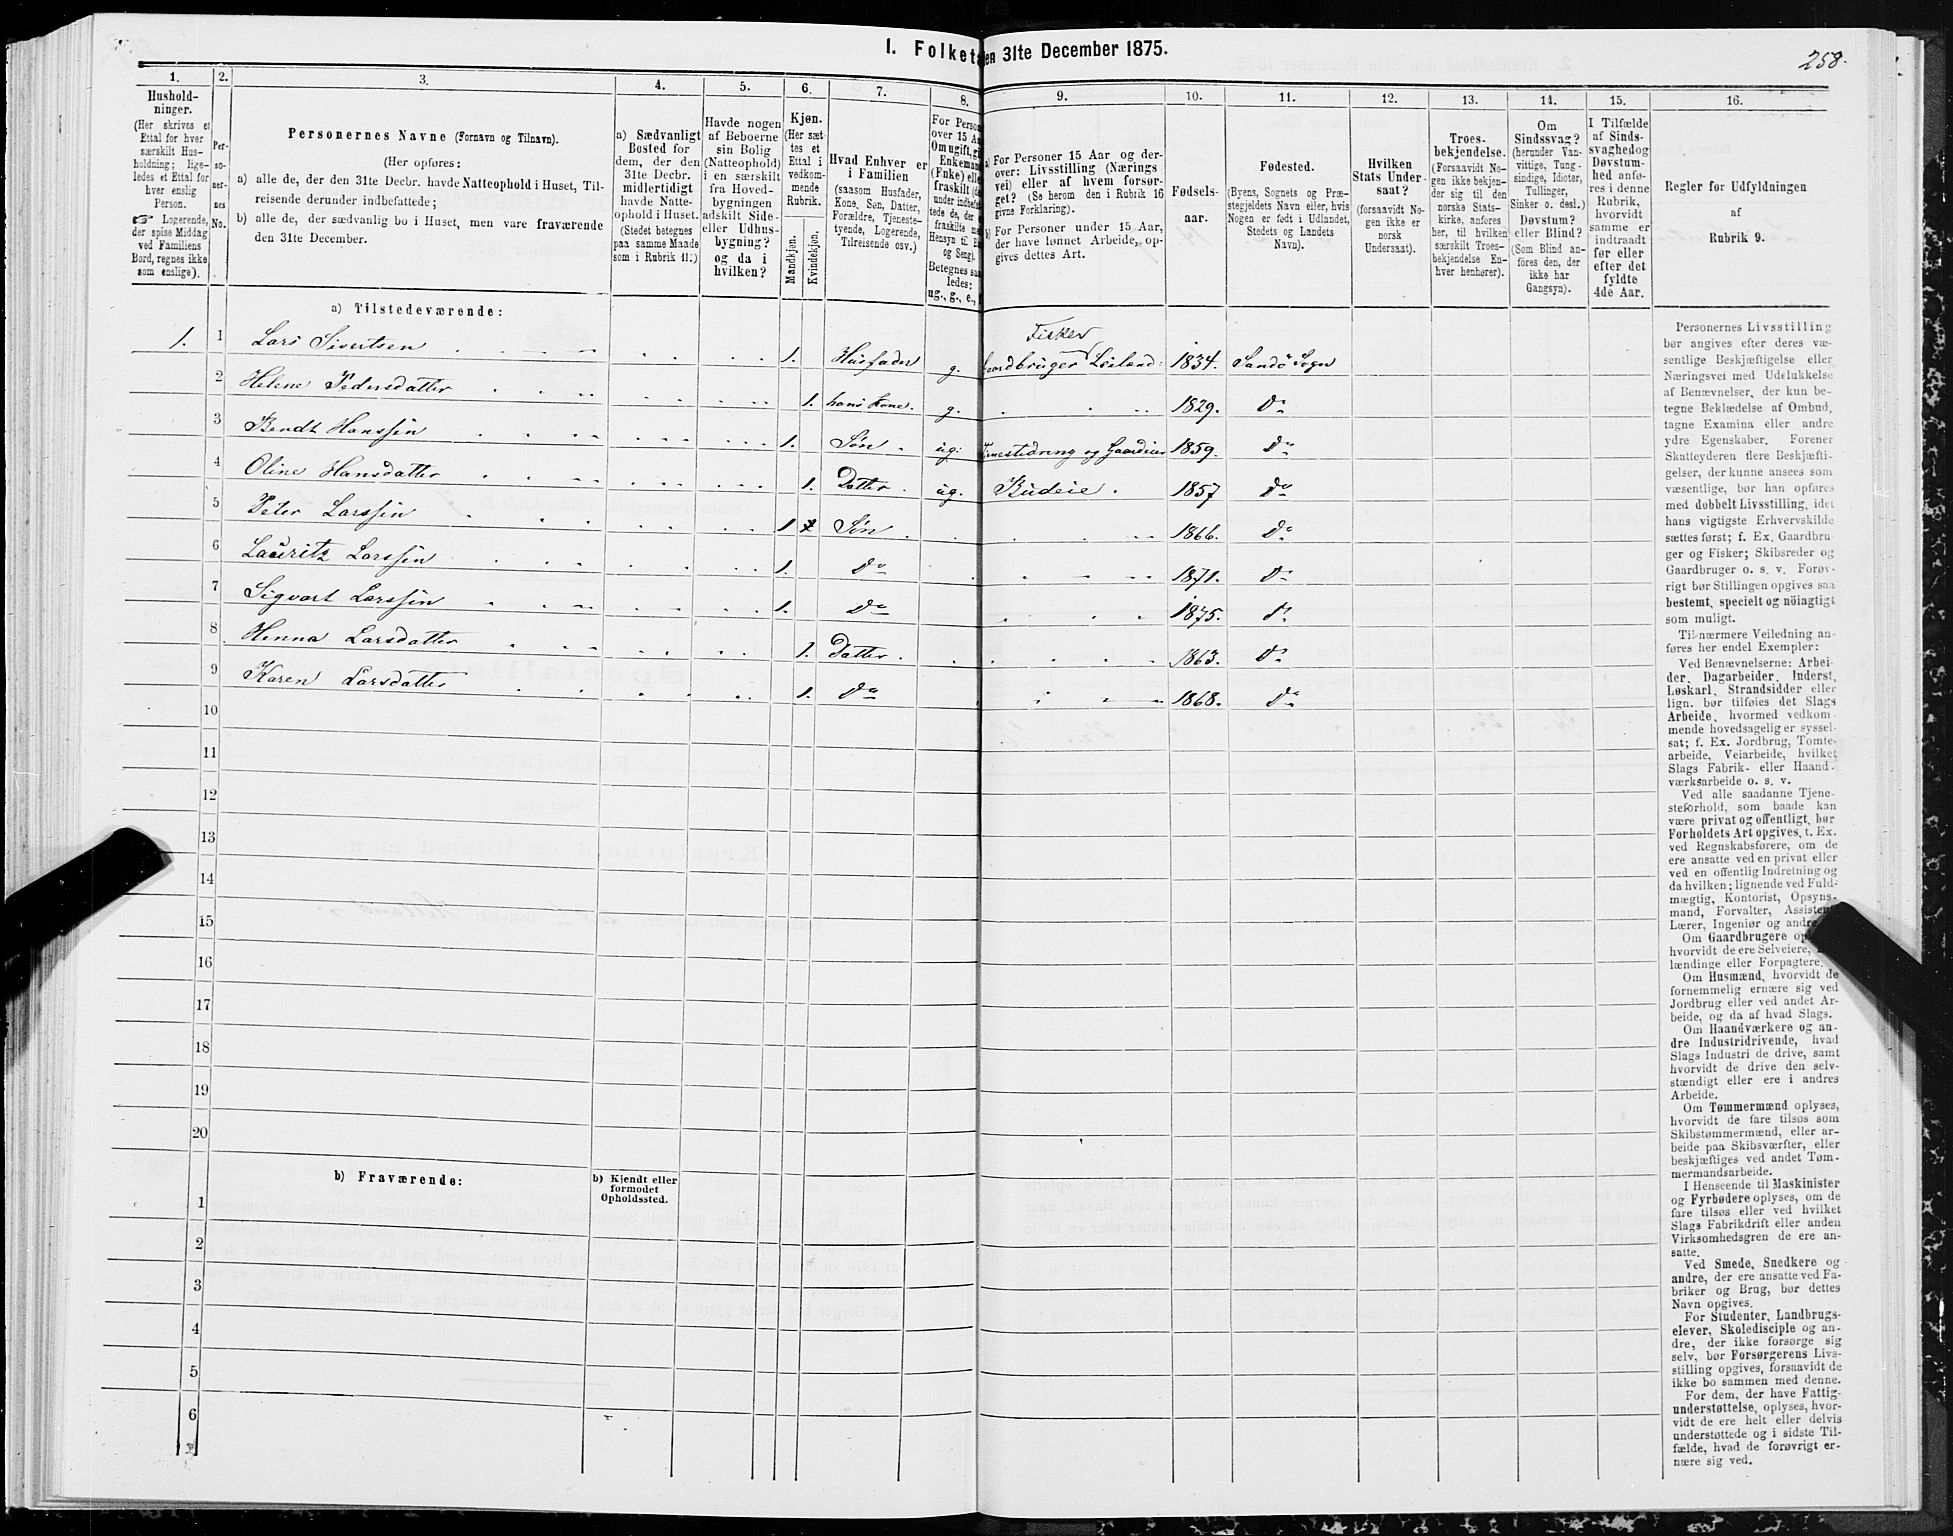 I. Folketæ
en 31te December 1875.
258.
1.
2.
3.
4.
5.
6.
7.
8.
9.
10.
11.
12.
13.
14.
15.
16.
Hushold-
ninger.
(Her skrives et
Ettal for hver
særskilt Hus-
holdning; lige-
ledes et Ettal for
hver enslig
Person.
☞ Logerende,
der spise Middag
ved Familiens
Bord, regnes ikke
som enslige).
Per-
so-
ner-
nes
No.
Personernes Navne (Fornavn og Tilnavn).
(Her opføres:
a) alle de, der den 31te Decbr. havde Natteophold i Huset, Til-
reisende derunder indbefattede;
b) alle de, der sædvanlig bo i Huset, men vare fraværende
den 31te December.
a) Sædvanligt
Bosted for
dem, der den
31te Decbr.
midlertidigt
havde Natte-
ophold i Huset.
(Stedet betegnes
paa samme Maade
som i Rubrik 11.)
Havde nogen
af Beboerne
sin Bolig
(Natteophold)
i en særskilt
fra Hoved-
bygningen
adskilt Side-
eller Udhus-
bygning?
og da i
hvilken?
Kjøn.
(Her sæt-
tes et
Ettal i
vedkom-
mende
Rubrik.
Mandkjøn.
Kvindekjøn.
Hvad Enhver er
i Familien
(saasom Husfader,
Kone, Søn, Datter,
Forældre, Tjeneste-
tyende, Logerende,
Tilreisende osv.)
For Person
over 15 Aa
Om ugift, gi
Enkemand
(Enke) elle
fraskilt (de
under indbefat
tede de, der e
fraskilte med
Hensyn til Bo
og Seng).
Betegnes saa
ledes:
ug., g., e., f
a) For Personer 15 Aar og der-
over: Livsstilling (Nærings
vei) eller af hvem forsør-
get? (Se herom den i Rubrik 16
givne Forklaring).
b) For Personer under 15 Aar,
der have lønnet Arbeide, op-
gives dettes Art.
Fødsels-
aar.
Fødested.
(Byens, Sognets og Præ-
stegjeldets Navn eller, hvis
Nogen er født i Udlandet,
Stedets og Landets
Navn).
Hvilken
Stats Under-
saat?
(forsaavidt No-
gen ikke er
norsk
Undersaat).
Troes-
bekjendelse.
(Forsaavidt No-
gen ikke bekjen-
der sig til den
norske Stats-
kirke, anføres
her, til hvilken
særskilt Troes-
bekjendelse En-
hver henhører).
Om
Sindssvag?
(herunder Van-
vittige, Tung-
sindige, Idioter,
Tullinger,
Sinker o. desl.)
Døvstum?
eller Blind?
(Som Blind an-
føres den, der
ikke har
Gangsyn).
I Tilfælde
af Sinds-
svaghed og
Døvstum-
hed anfø-
res i denne
Rubrik,
hvorvidt
samme er
indtraadt
før eller
efter det
fyldte
4de Aar.
Regler for Udfyldningen
af
Rubrik 9.
a) Tilstedeværende:
1. 1 Lars Sivertsen 1. Husfader g. Gaardbruger Leiland: Fisker 1834. Sandö Sogn
2 Helene Pedersdatter 1. hans Kone. g. 1829. Do
3 Bendt Hanssen 1. Søn. ug. Tjenestedreng og Gaardeier 1859. Do
4 Oline Hansdatter 1. Datter. ug. Budeie. 1857 Do
5 Peter Larssen 1 Søn. 1866. Do
6 Lauritz Larssen 1. Do 1871. Do
7 Sigvart Larssen 1. Do 1875. Do
8 Henna Larsdatter 1. Datter. 1863. Do
9 Karen Larsdatter 1. Do 1868. Do
10
11
12
13
14
15
16
17
18
19
20
b) Fraværende:
b) Kjendt eller
formodet
Opholdssted.
1
2
3
4
5
6
Personernes Livsstilling
bør angives efter deres væ-
sentlige Beskjæftigelse eller
Næringsvei med Udelukkelse
af Benævnelser, der kun be-
tegne Beklædelse af Ombud,
tagne Examina eller andre
ydre Egenskaber. Forener
Skatteyderen flere Beskjæfti-
gelser, der kunne ansees som
væsentlige, bør han opføres
med dobbelt Livsstilling, idet
hans vigtigste Erhvervskilde
sættes først; f. Ex. Gaardbru-
ger og Fisker; Skibsreder og
Gaardbruger o. s. v. Forøv-
rigt bør Stillingen opgives saa
bestemt, specielt og nöiagtigt
som muligt.
Til nærmere Veiledning an-
føres her endel Exempler:
Ved Benævnelserne: Arbei-
der, Dagarbeider, Inderst,
Løskarl, Strandsidder eller
lign. bør tilføies det Slags
Arbeide, hvormed vedkom-
mende hovedsagelig er syssel-
sat; f. Ex. Jordbrug, Tomte-
arbeide, Veiarbeide, hvilket
Slags Fabrik- eller Haand-
værksarbeide o. s. v.
Ved alle saadanne Tjene-
steforhold, som baade kan
være privat og offentligt, bør
Forholdets Art opgives, t. Ex.
ved Regnskabsførere, om de
ere ansatte ved en privat eller
ved en offentlig Indretning og
da hvilken; lignende ved Fuld-
mægtig, Kontorist, Opsyns-
mand, Forvalter, Assistent,
Lærer, Ingeniør og andre.
Om Gaardbrugere op
hvorvidt de ere Selveiere,
lændinge eller Forpagtere.
Om Husmænd, hvorvidt de
fornemmelig ernære sig ved
Jordbrug eller ved andet Ar-
beide, og da af hvad Slags.
Om Haandværkere og an-
dre Industridrivende, hvad
Slags Industri de drive, samt
hvorvidt de drive den selv-
stændigt eller ere i andres
Arbeide.
Om Tømmermænd oplyses,
hvorvidt de fare tilsøs som
Skibstømmermænd, eller ar-
beide paa Skibsværfter, eller
beskjæftiges ved andet Tøm-
mermandsarbeide.
I Henseende til Maskinister
og Fyrbødere oplyses, om de
fare tilsøs eller ved hvilket
Slags Fabrikdrift eller anden
Virksomhedsgren de ere an-
satte.
Ved Smede, Snedkere og
andre, der ere ansatte ved Fa-
briker og Brug, bør dettes
Navn opgives.
For Studenter, Landbrugs-
elever, Skoledisciple og an-
dre, der ikke forsørge sig
selv, bør Forsørgerens Livs-
stilling opgives, forsaavidt de
ikke bo sammen med denne.
For dem, der have Fattig-
understøttelse, oplyses, hvor-
vidt de ere helt eller delvis
understøttede og i sidste Til-
fælde, hvad de forøvrigt er-
nære sig ved.